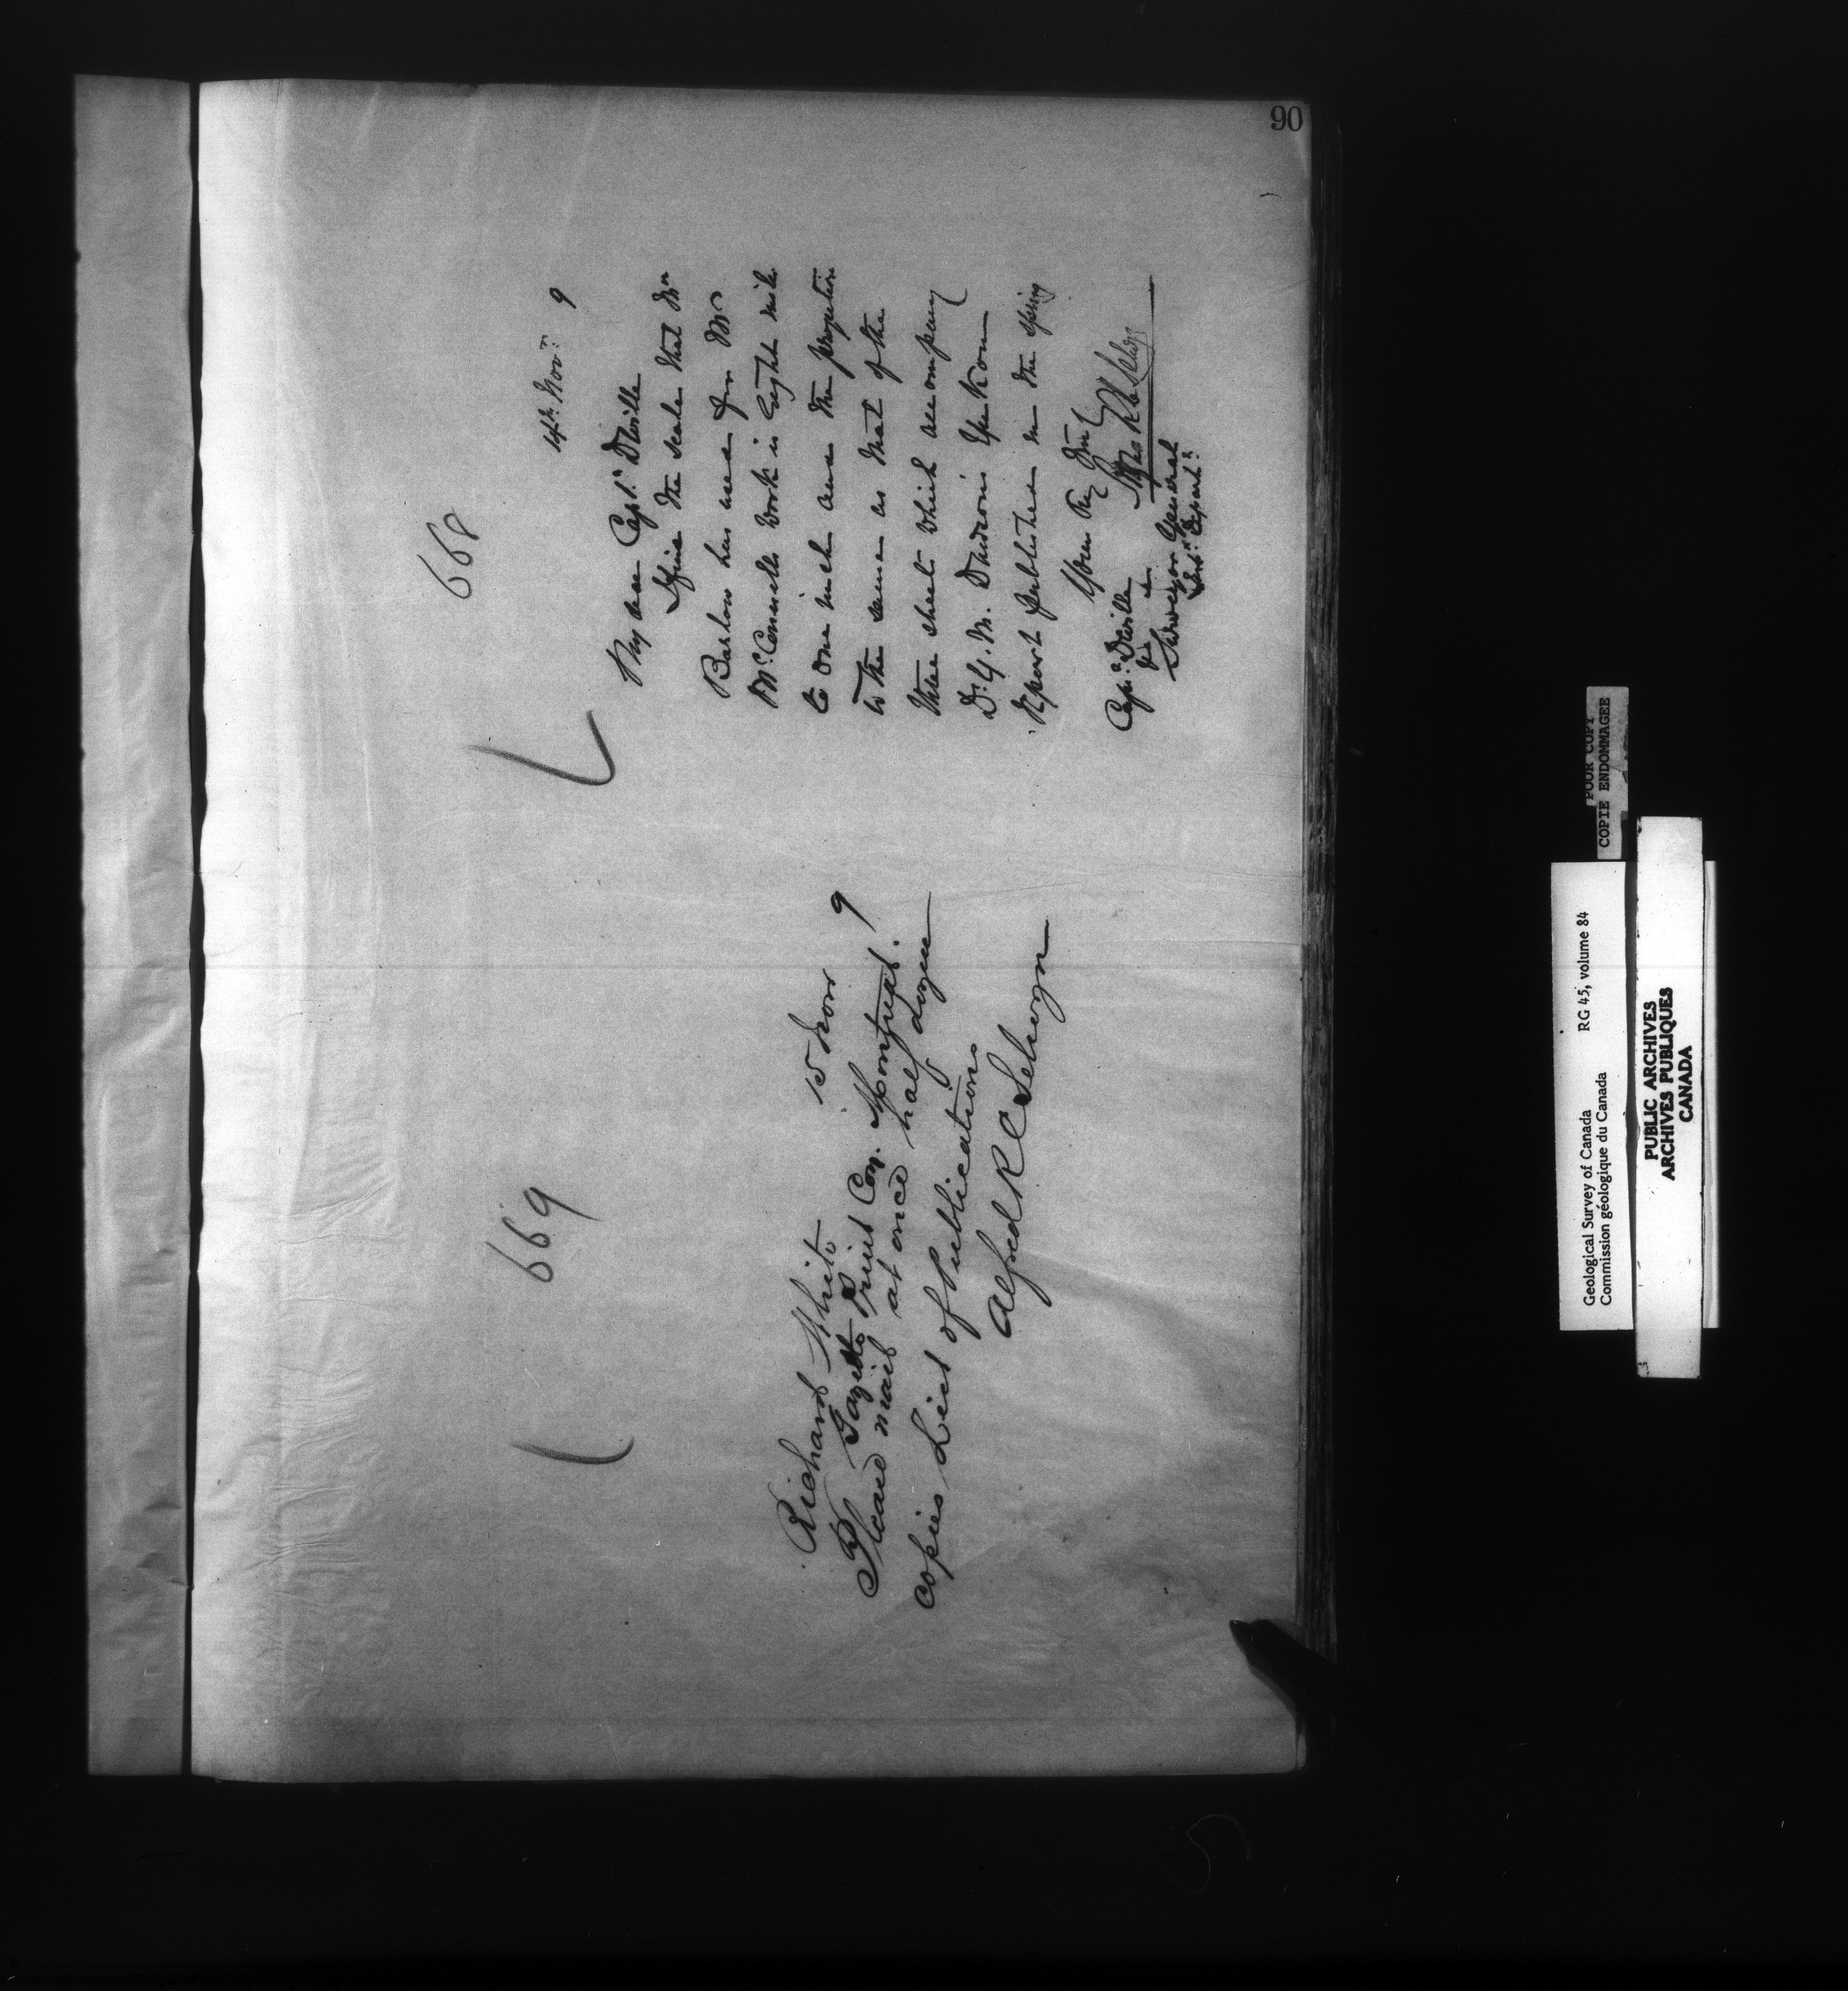 90
668
14th Novr. 9
My dear Capt. Deville
I find the scale that Mr
Barlow has used for Mr
McConnells work is Eight miles
to one inch and the projection
is the same as that of the
three sheets which accompany
Dr. G. M. Dawson's Yukon
Report published in the spring
Yours very truly
Alfred R C Selwyn
Capt. Deville
Surveyor General
Intr. Departt.
669
15 Novr 9
Richard White
Gazette Print Coy. Montreal.
Please mail at once half dozen
copies List of Publications
Alfred R C Selwyn
POOR COPY
COPIE ENDOMMAGEE
Geological Survey of Canada RG 45, volume 84
Commission géologique du Canada
PUBLIC ARCHIVES
ARCHIVES PUBLIQUES
CANADA